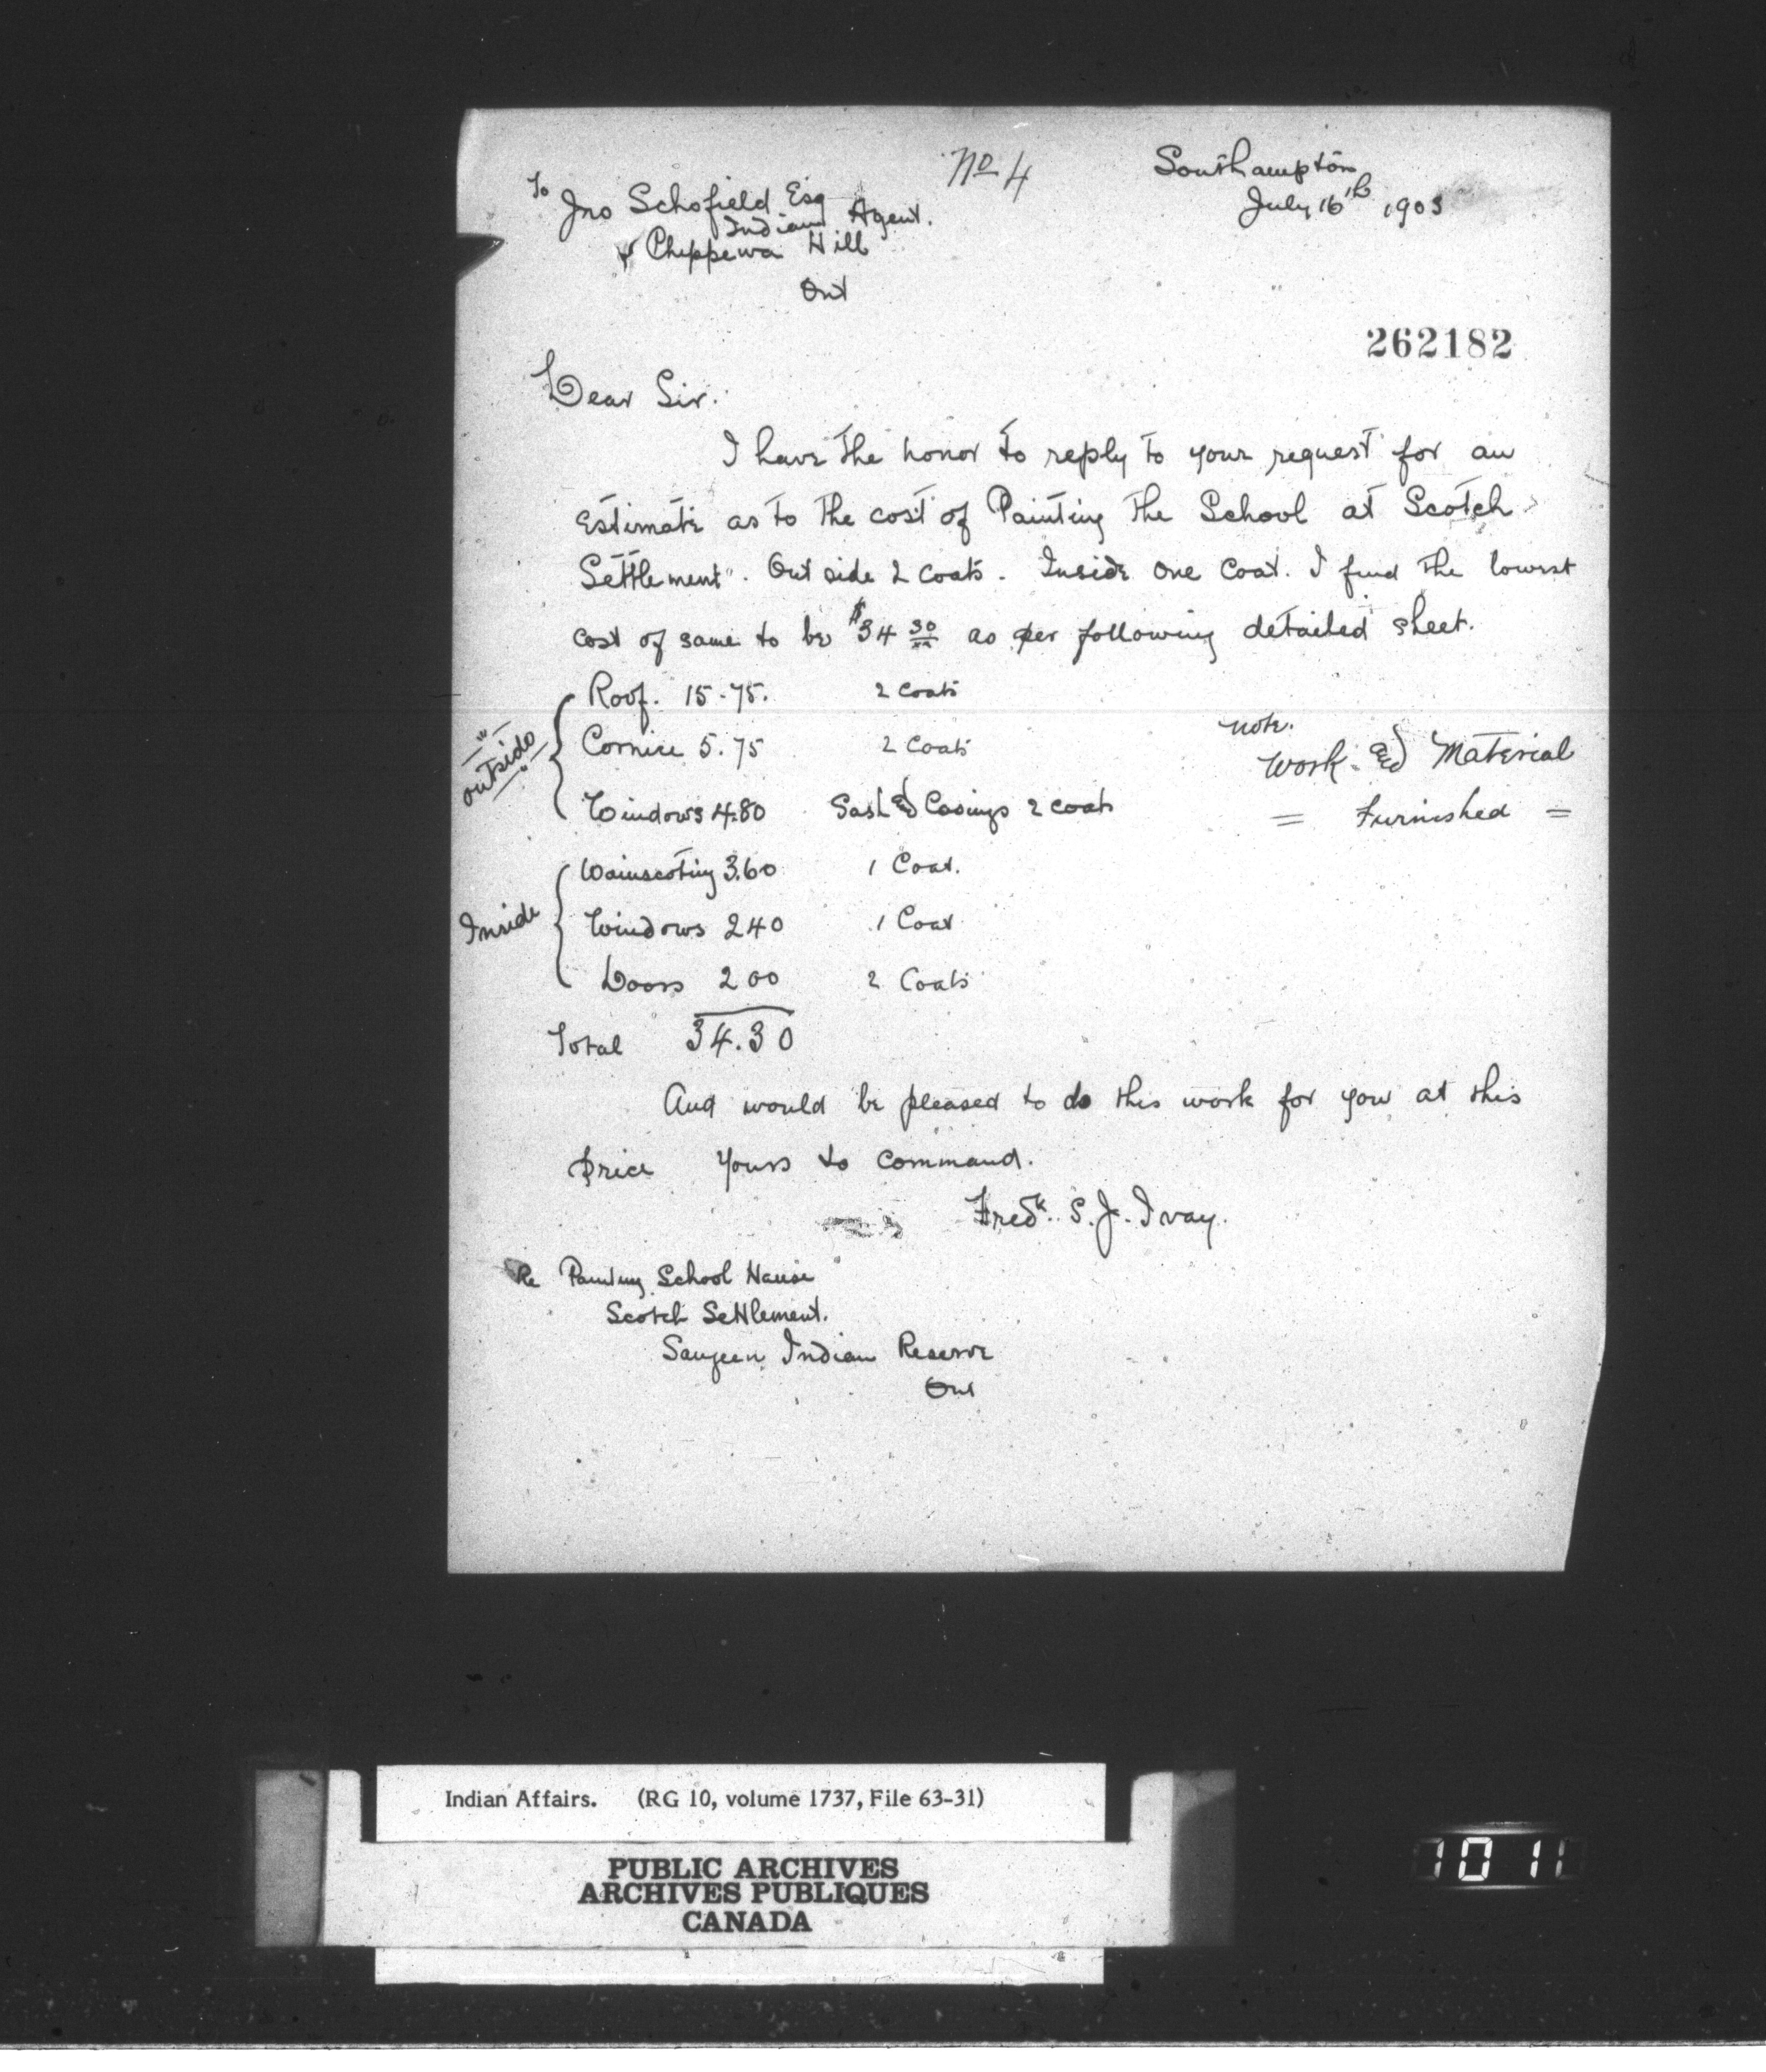 No 4
Southampton
July 16th 1903
To
Jno Schofield Esq
Indian Agent.
Chippewa Hill
Ont
262182
Dear Sir.
I have the honor to reply to your request for an
Estimate as to the cost of Painting the School at Scotch
Settlement". Out side 2 coats. Inside one coat. I find the lowest
cost of same to be $34 30/xx as per following detailed sheet.
outside
Roof. 15-75. 2 coats
Cornice 5.75 2 coats
Windows 4.80 Sash & Casings 2 coats
note.
Work & Material
= Furnished =
Inside
Wainscoting 3.60 1 Coat.
Windows 240 1 Coat
Doors 200 2 Coats
Total 34.30
And would be pleased to do this work for you at this
price Yours to command.
Fredk. S. J. Ivay.
Re Painting School House
Scotch Settlement.
Saugeen Indian Reserve
Ont
Indian Affairs. (RG 10, volume 1737, File 63-31)
PUBLIC ARCHIVES
ARCHIVES PUBLIQUES
CANADA
1011